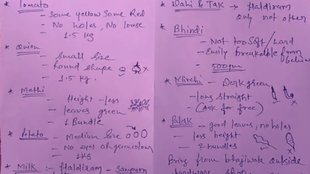 * Tomato
- Some yellow some Red
- No holes, No loose
- 1.5 kg
* Onion
- Small size
- Round shape
- 1.5 kg
* Methi
- Height - less
- leaves green
- 1 Bundle
* Potato - Medium Size
- No eyes
1 kg
* Milk - Haldiram -
* Dahi & Tak → Haldiram
only not other
* Bhindi
- Not too Soft / Hard
- Easily breakable from
behind
- 500gm
- Dark green
- less straight
- (Ask for free)
* Palak - good leaves, no holes
- less height
- 2 bundles
Bring from outside